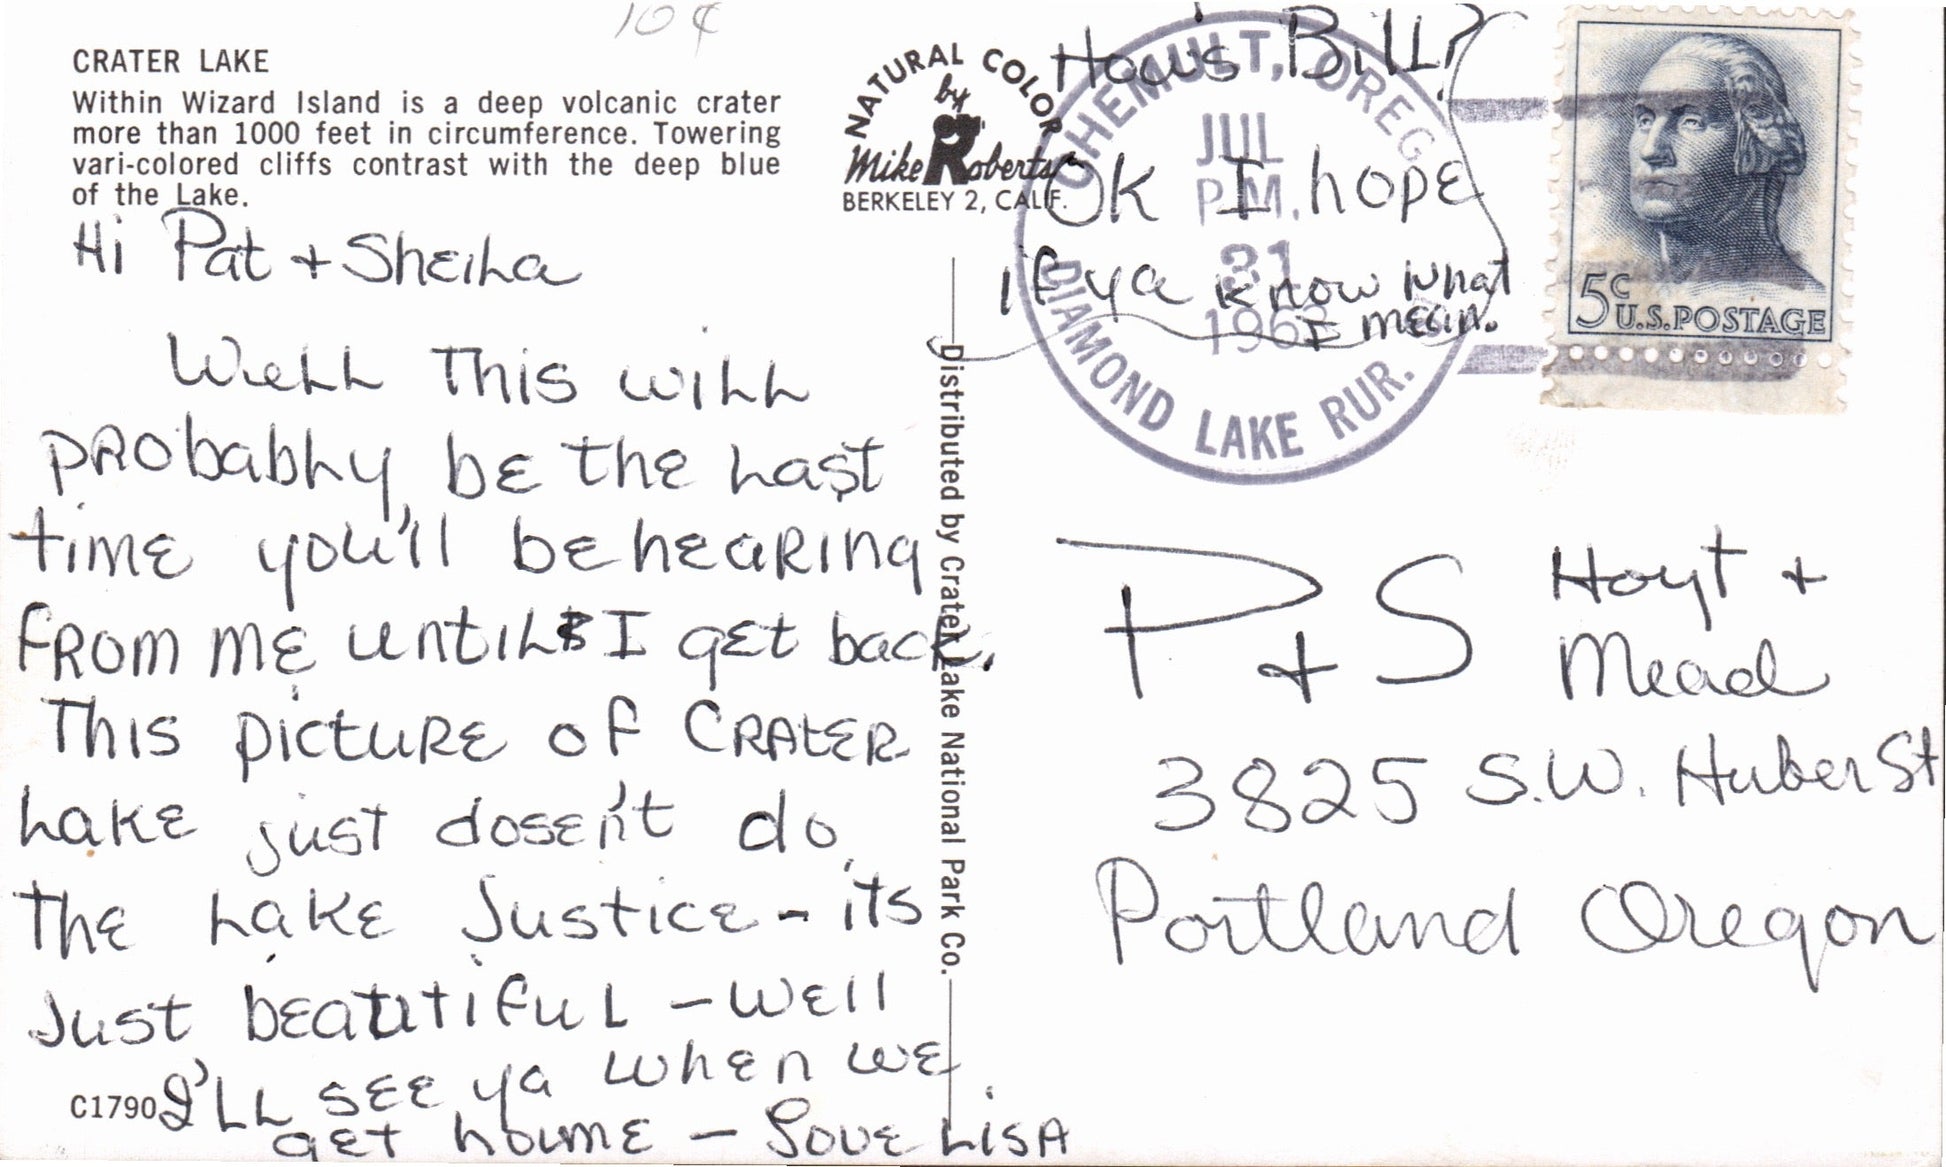 10¢
CRATER LAKE
Within Wizard Island is a deep volcanic crater
more than 1000 feet in circumference. Towering
vari-colored cliffs contrast with the deep blue
of the Lake.
NATURAL COLOR
by
Mike Roberts
BERKELEY 2, CALIF.
Hi Pat + Sheila
Well This will
probably be the last
time you'll be hearing
from me until I get back.
This picture of Crater
Lake just dosen't do
the Lake Justice - its
Just beautiful - well
I'll see ya when we
get home - Love Lisa
C1790
Distributed by Crater Lake National Park Co.
How's Bill?
Ok I hope
if ya know what
I mean.
CHEMULT, OREG.
JUL
P.M.
31
DIAMOND LAKE RUR.
5c
U.S. POSTAGE
P + S Hoyt +
Mead
3825 S.W. Huber St
Portland Oregon